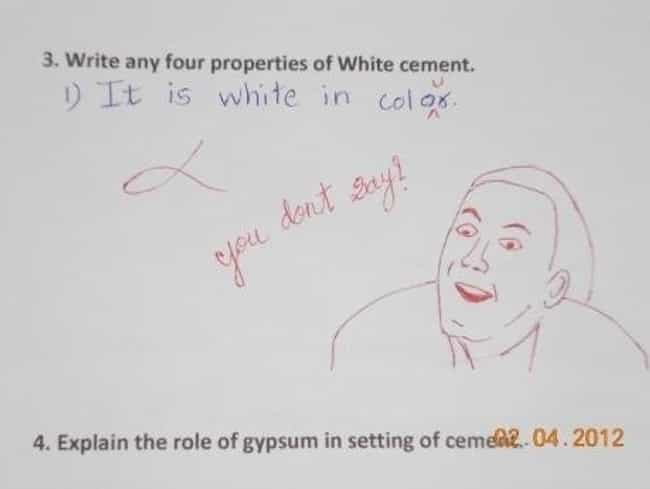 3. Write any four properties of White cement.
1) It is white in color.
u
you dont say?
4. Explain the role of gypsum in setting of cement.
02.04.2012